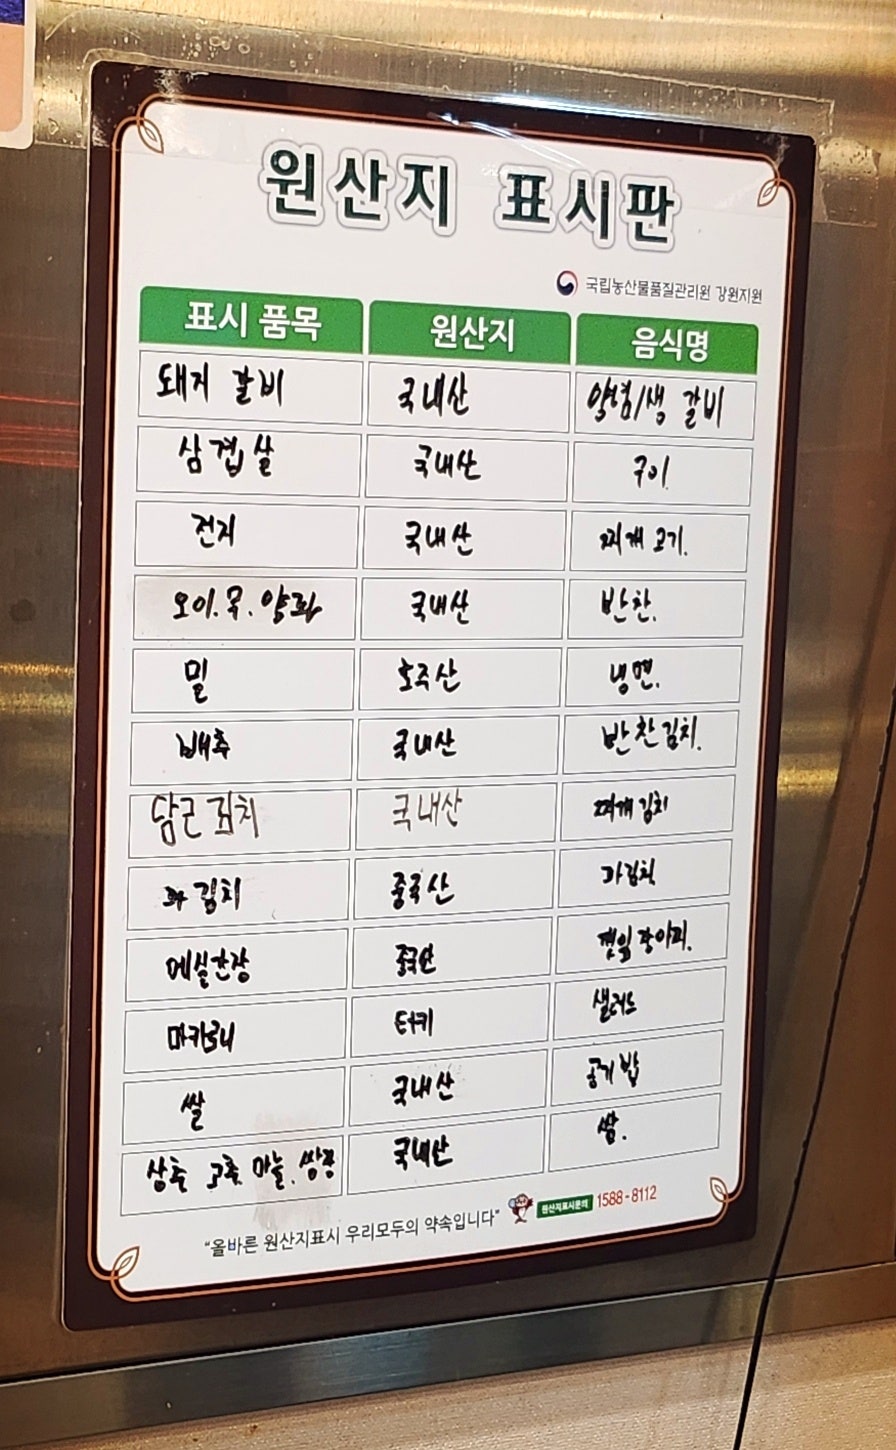 원산지 표시판
국립농산물품질관리원 강원지원
표시 품목 원산지 음식명
돼지 갈비 국내산 양념/생 갈비
삼겹살 국내산 구이
전지 국내산 찌개 고기.
오이.무.양파 국내산 반찬.
밀 호주산 냉면.
배추 국내산 반찬김치.
담근김치 국내산 찌개김치
파김치 중국산 파김치
간장 중국산 깻잎장아찌.
마카로니 터키 샐러드
쌀 국내산 공기밥
상추 고추. 마늘. 국내산 쌈.
"올바른 원산지표시 우리모두의 약속입니다" 원산지표시문의 1588-8112